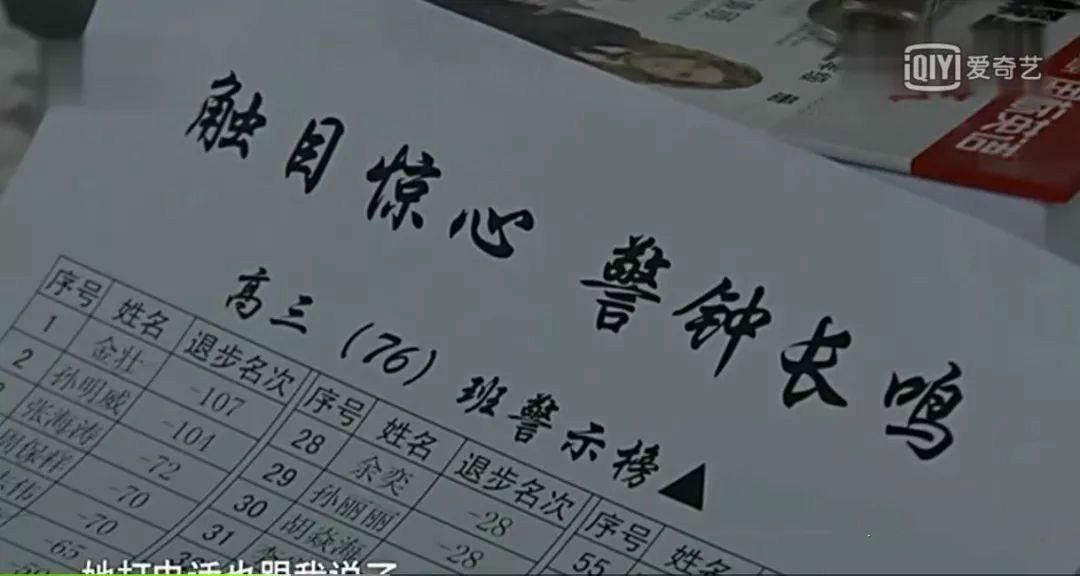 iQIY 爱奇艺
触目惊心 警钟长鸣
高三（76）班警示榜▲
序号 姓名 退步名次
1 金壮 -107
2 孙明威 -104
张海涛 -72
周保样 -70
伟 -70
-65
序号 姓名 退步名次
28 余奕 -28
29 孙丽丽 -28
30 胡焱海
31
序号 姓名
55
她打电话也跟我说了